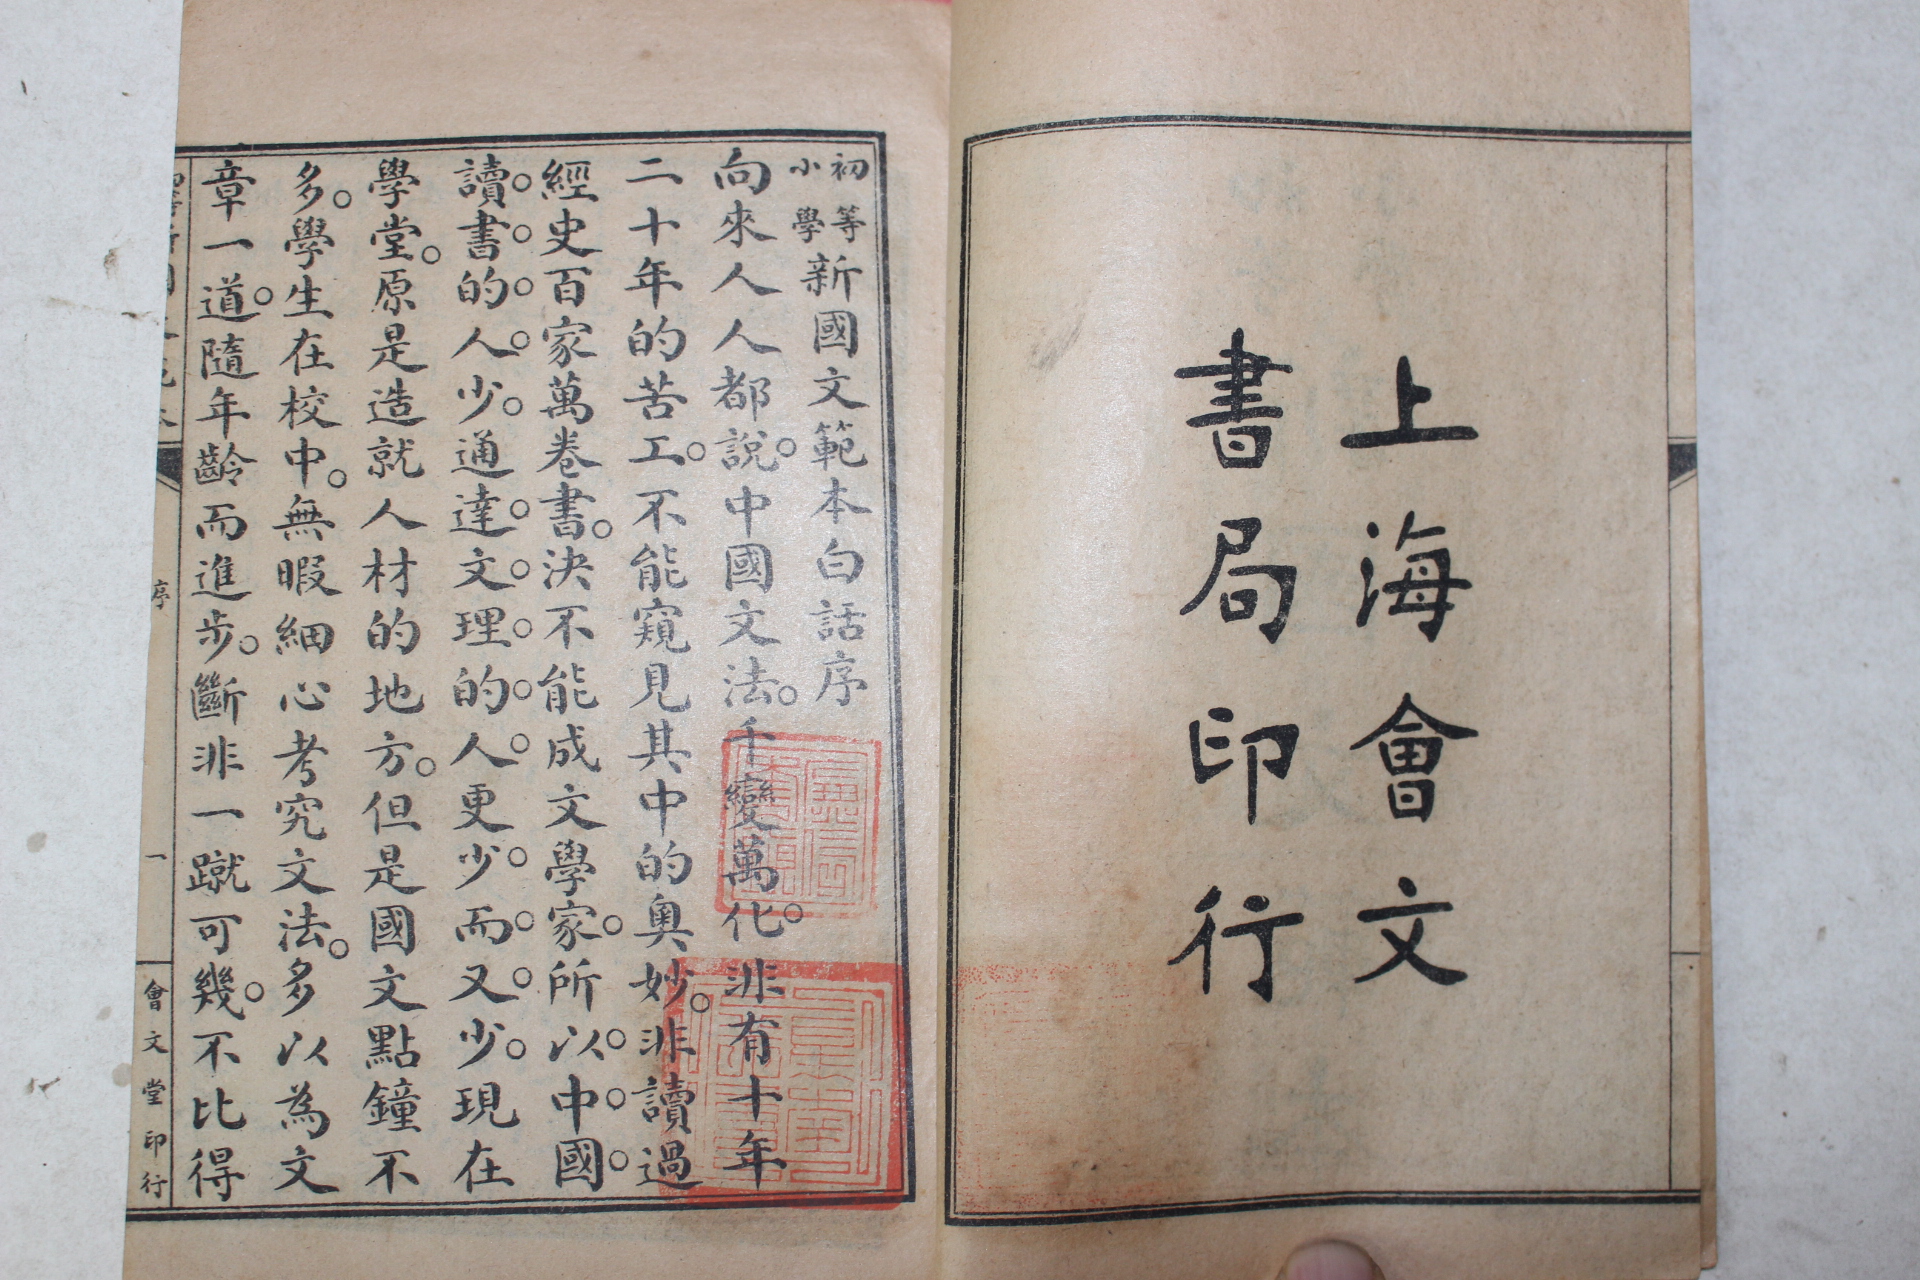 上海會文
書局印行
初等
小學
新國文範本白話序
向來人人都說。中國文法。千變萬化。非有十年
二十年的苦工。不能窺見其中的奧妙。非讀過
經史百家萬卷書。決不能成文學家。所以中國
讀書的人少。通達文理的人更少而又少。現在
學堂。原是造就人材的地方。但是國文點鐘不
多。學生在校中。無暇細心考究文法。多以為文
章一道。隨年齡而進步。斷非一蹴可幾。不比得
序
一
會文堂印行